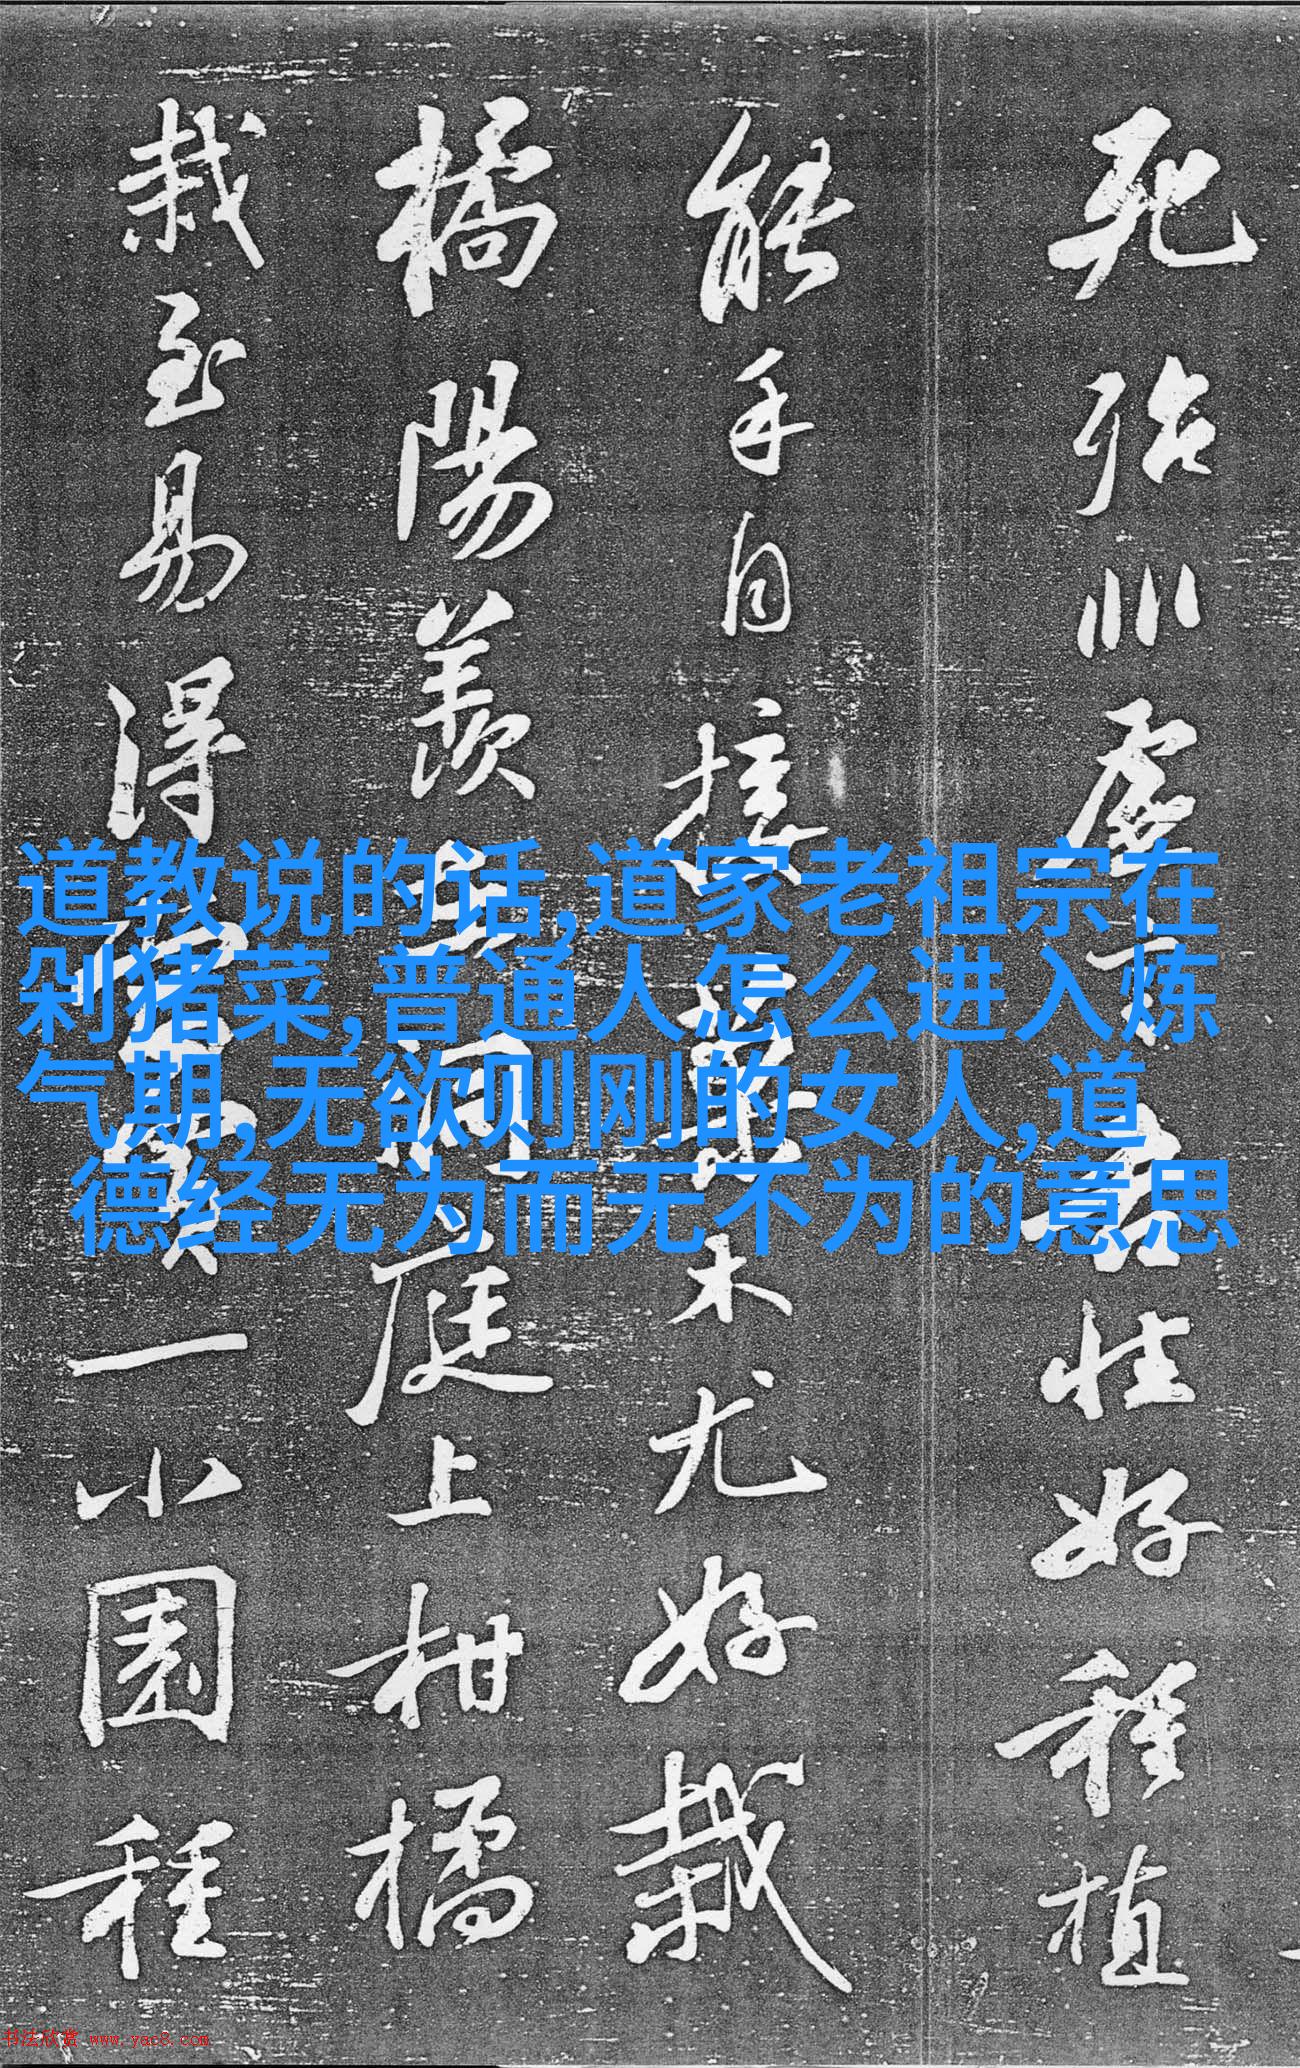 死殆非虚言吾性好種植
能手自接果木尤好栽
橘陽羨在洞庭上柑橘
栽至易得當買一小園種
道教说的话,道家老祖宗在
剁猪菜,普通人怎么进入炼
气期,无欲则刚的女人,道
德经无为而无不为的意思
书法欣赏 www.yac8.com